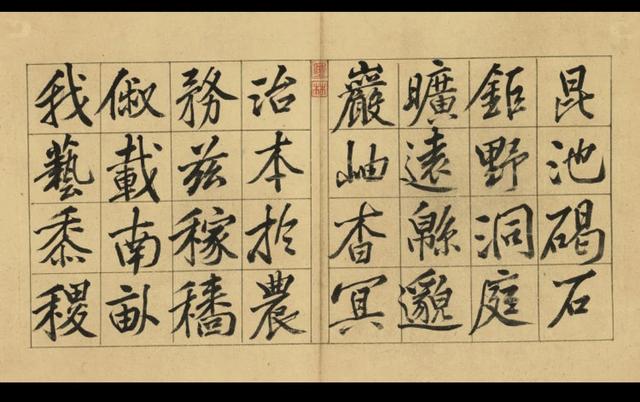 昆池碣石
鉅野洞庭
曠遠緜邈
巖岫杳冥
治本於農
務茲稼穡
俶載南畝
我藝黍稷